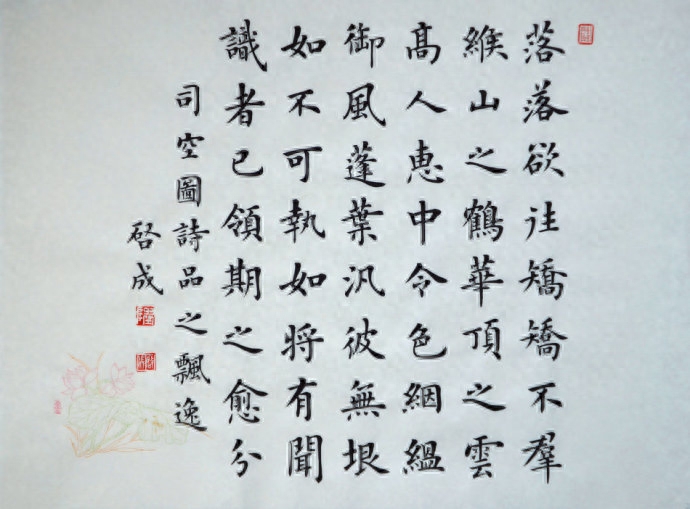 落落欲往矯矯不羣
緱山之鶴華頂之雲
高人惠中令色絪縕
御風蓬葉汎彼無垠
如不可執如將有聞
識者已領期之愈分
司空圖詩品之飄逸
啓成